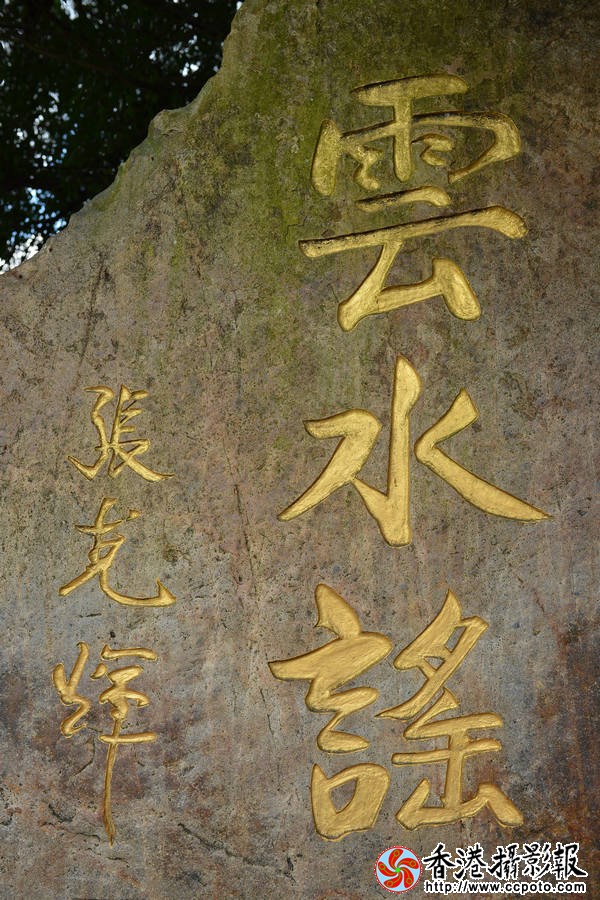 雲水謠
張克輝
香港攝影報
http://www.ccpoto.com/